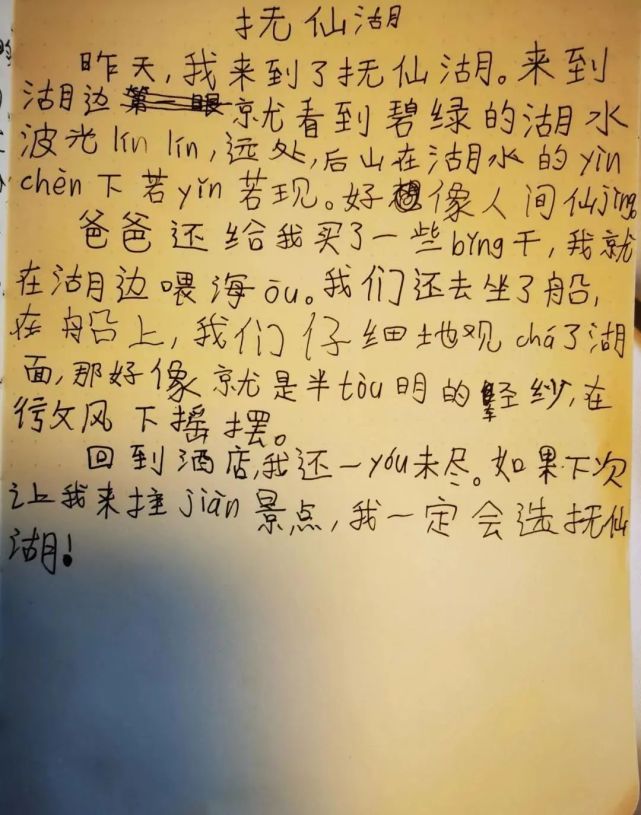 抚仙湖
昨天，我来到了抚仙湖。来到
湖边就看到碧绿的湖水
波光lín lín，远处，后山在湖水的yìn
chèn下若yǐn若现。好像人间仙jìng。
爸爸还给我买了一些bǐng干，我就
在湖边喂海ōu。我们还去坐了船，
在船上，我们仔细地观chá了湖
面，那好像就是半tòu明的轻纱，在
微风下摇摆。
回到酒店，我还一yóu未尽。如果下次
让我来推jiàn景点，我一定会选抚仙
湖！